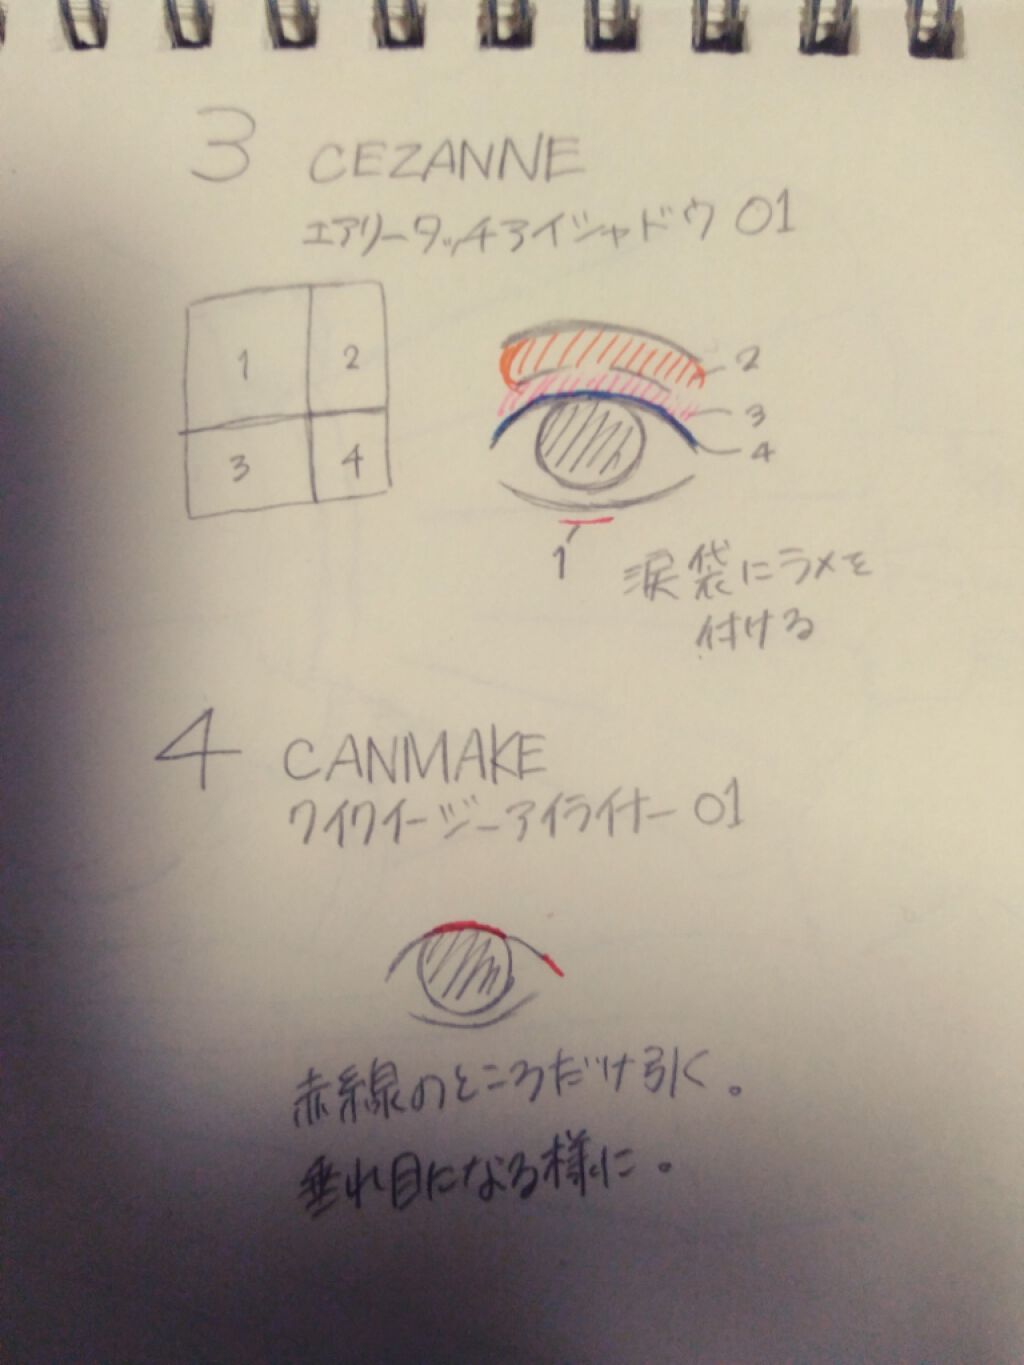 3 CEZANNE
エアリータッチアイシャドウ 01
1 2
3 4
2
3
4
1
涙袋にラメを
付ける
4 CANMAKE
クイクイージーアイライナー 01
赤線のところだけ引く。
垂れ目になる様に。